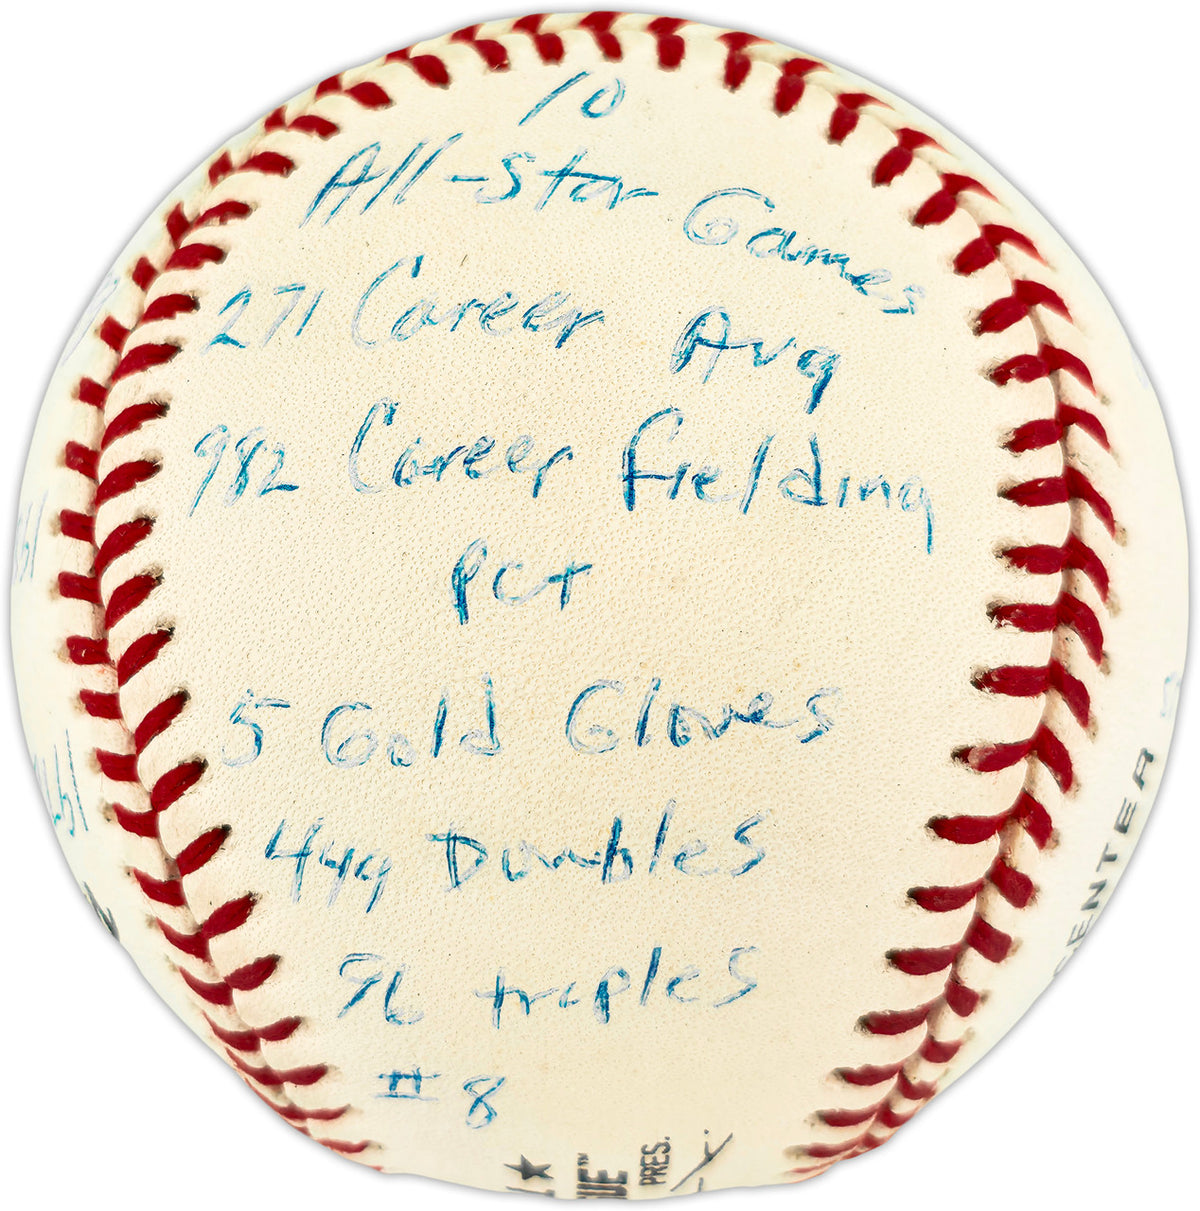 10
All-Star Games
271 Career Avg
982 Career Fielding
Pct
5 Gold Gloves
449 Doubles
96 triples
# 8
PRES.
CENTER